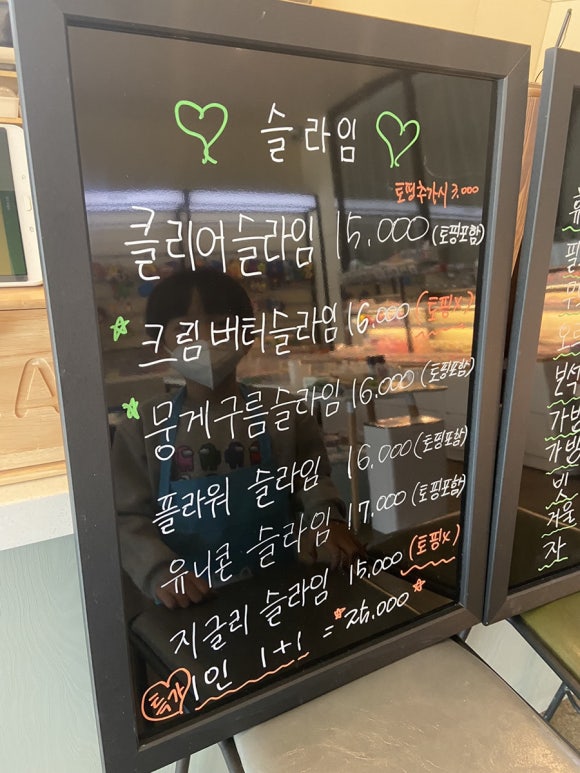 슬라임
토핑추가시 3.000
클리어슬라임 15.000 (토핑포함)
크림버터슬라임 16.000 (토핑X)
뭉게구름슬라임 16.000 (토핑포함)
플라워 슬라임 16.000 (토핑포함)
유니콘 슬라임 17.000 (토핑포함)
지글리 슬라임 15.000 (토핑X)
특가 1인 1+1 = 25.000
보석
가방
빗
거울
자